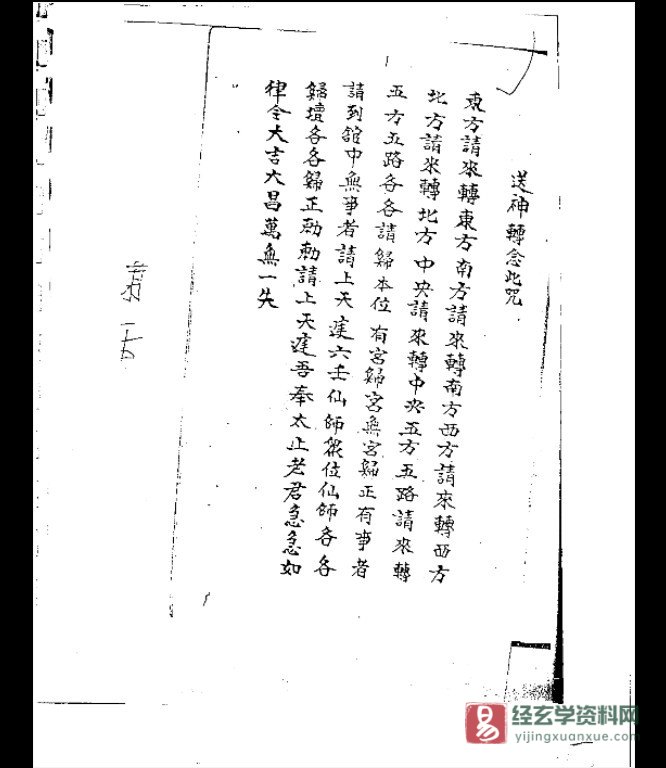 送神轉念此咒
東方請來轉東方南方請來轉南方西方請來轉西方
北方請來轉北方中央請來轉中央五方五路請來轉
五方五路各各請歸本位有宮歸宮無宮歸正有事者
請到舘中無事者請上天達六壬仙師眾位仙師各各
歸壇各各歸正勅勅請上天達吾奉太上老君急急如
律令大吉大昌萬無一失
易
经玄学资料网
yijingxuanxue.com